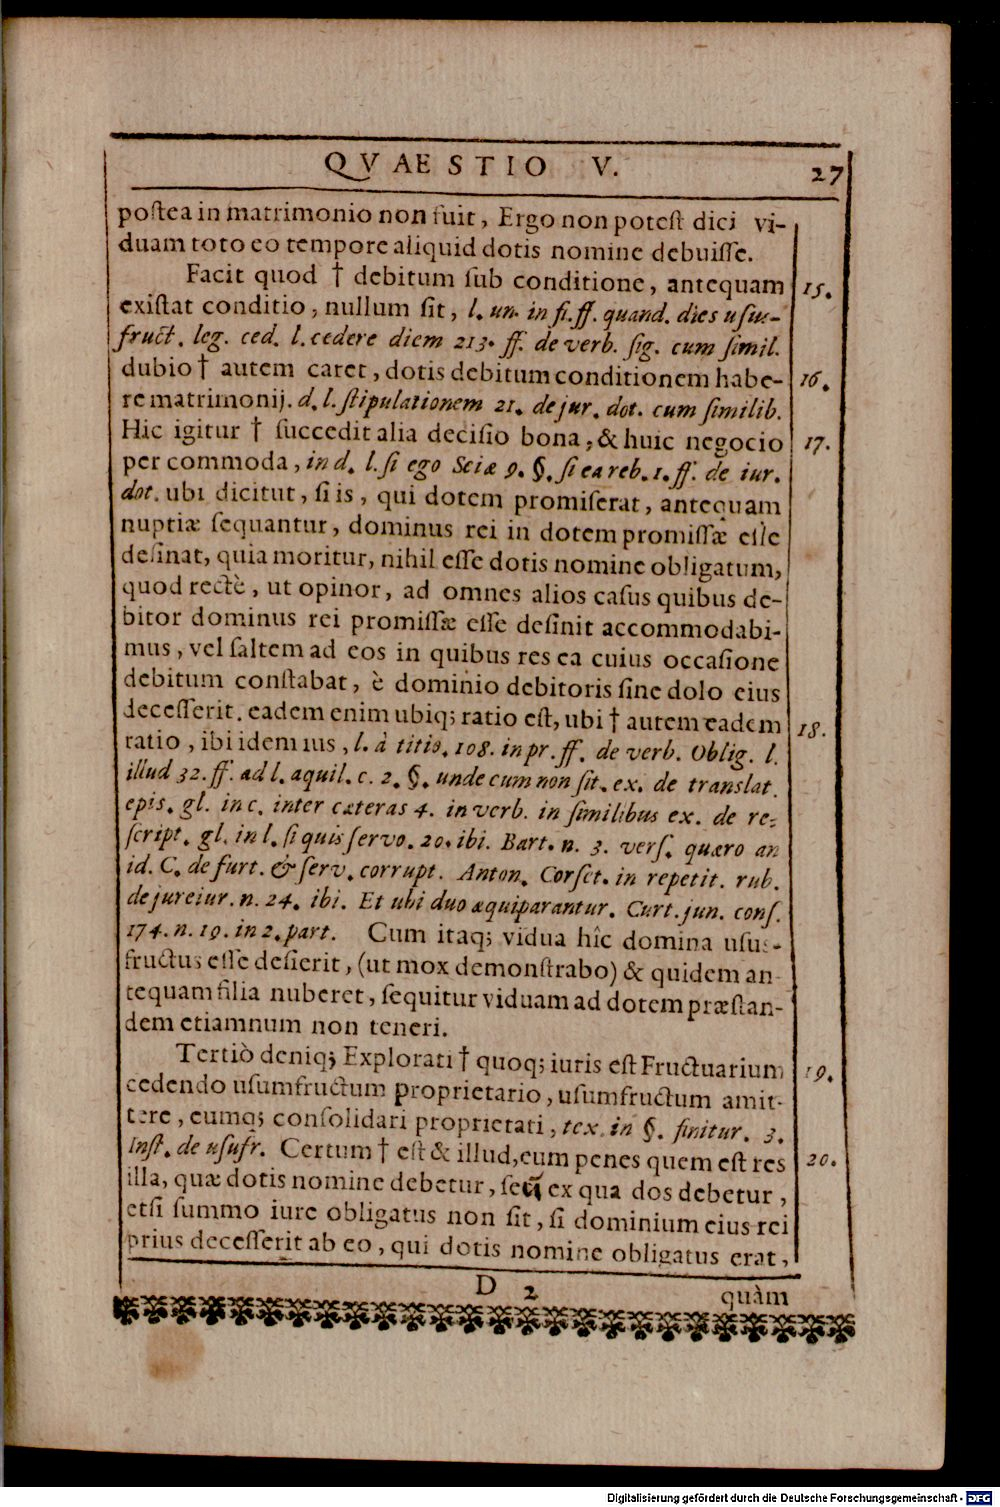 QVAESTIO V. 27
postea in matrimonio non fuit, Ergo non potest dici vi-
duam toto eo tempore aliquid dotis nomine debuisse.
Facit quod † debitum sub conditione, antequam 15.
existat conditio, nullum sit, l. un. in fi. ff. quand. dies usus-
fruct. leg. ced. l. cedere diem 213. ff. de verb. sig. cum simil.
dubio † autem caret, dotis debitum conditionem habe- 16.
re matrimonij. d. l. stipulationem 21. de jur. dot. cum similib.
Hic igitur † succedit alia decisio bona, & huic negocio 17.
per commoda, in d. l. si ego Seiæ 9. §. si ea reb. 1. ff. de iur.
dot. ubi dicitut, si is, qui dotem promiserat, antequam
nuptiæ sequantur, dominus rei in dotem promissæ esse
desinat, quia moritur, nihil esse dotis nomine obligatum,
quod rectè, ut opinor, ad omnes alios casus quibus de-
bitor dominus rei promissæ esse desinit accommodabi-
mus, vel saltem ad eos in quibus res ea cuius occasione
debitum constabat, è dominio debitoris sine dolo eius
decesserit. eadem enim ubiq; ratio est, ubi † autem eadem 18.
ratio, ibi idem ius, l. à titio. 108. in pr. ff. de verb. Oblig. l.
illud 32. ff. ad l. aquil. c. 2. §. unde cum non sit. ex. de translat.
epis. gl. in c. inter cæteras 4. in verb. in similibus ex. de re-
script. gl. in l. si quis servo. 20. ibi. Bart. n. 3. vers. quæro an
id. C. de furt. & serv. corrupt. Anton. Corset. in repetit. rub.
de jureiur. n. 24. ibi. Et ubi duo æquiparantur. Curt. jun. cons.
174. n. 19. in 2. part. Cum itaq; vidua hîc domina usus-
fructus esse desierit, (ut mox demonstrabo) & quidem an-
tequam filia nuberet, sequitur viduam ad dotem præstan-
dem etiamnum non teneri.
Tertiò deniq; Explorati † quoq; iuris est Fructuarium 19.
cedendo usumfructum proprietario, usumfructum amit-
tere, eumq; consolidari proprietati, tex. in §. finitur. 3.
Inst. de usufr. Certum † est & illud, eum penes quem est res 20.
illa, quæ dotis nomine debetur, seu ex qua dos debetur,
etsi summo iure obligatus non sit, si dominium eius rei
prius decesserit ab eo, qui dotis nomine obligatus erat,
D 2 quàm
Digitalisierung gefördert durch die Deutsche Forschungsgemeinschaft - DFG